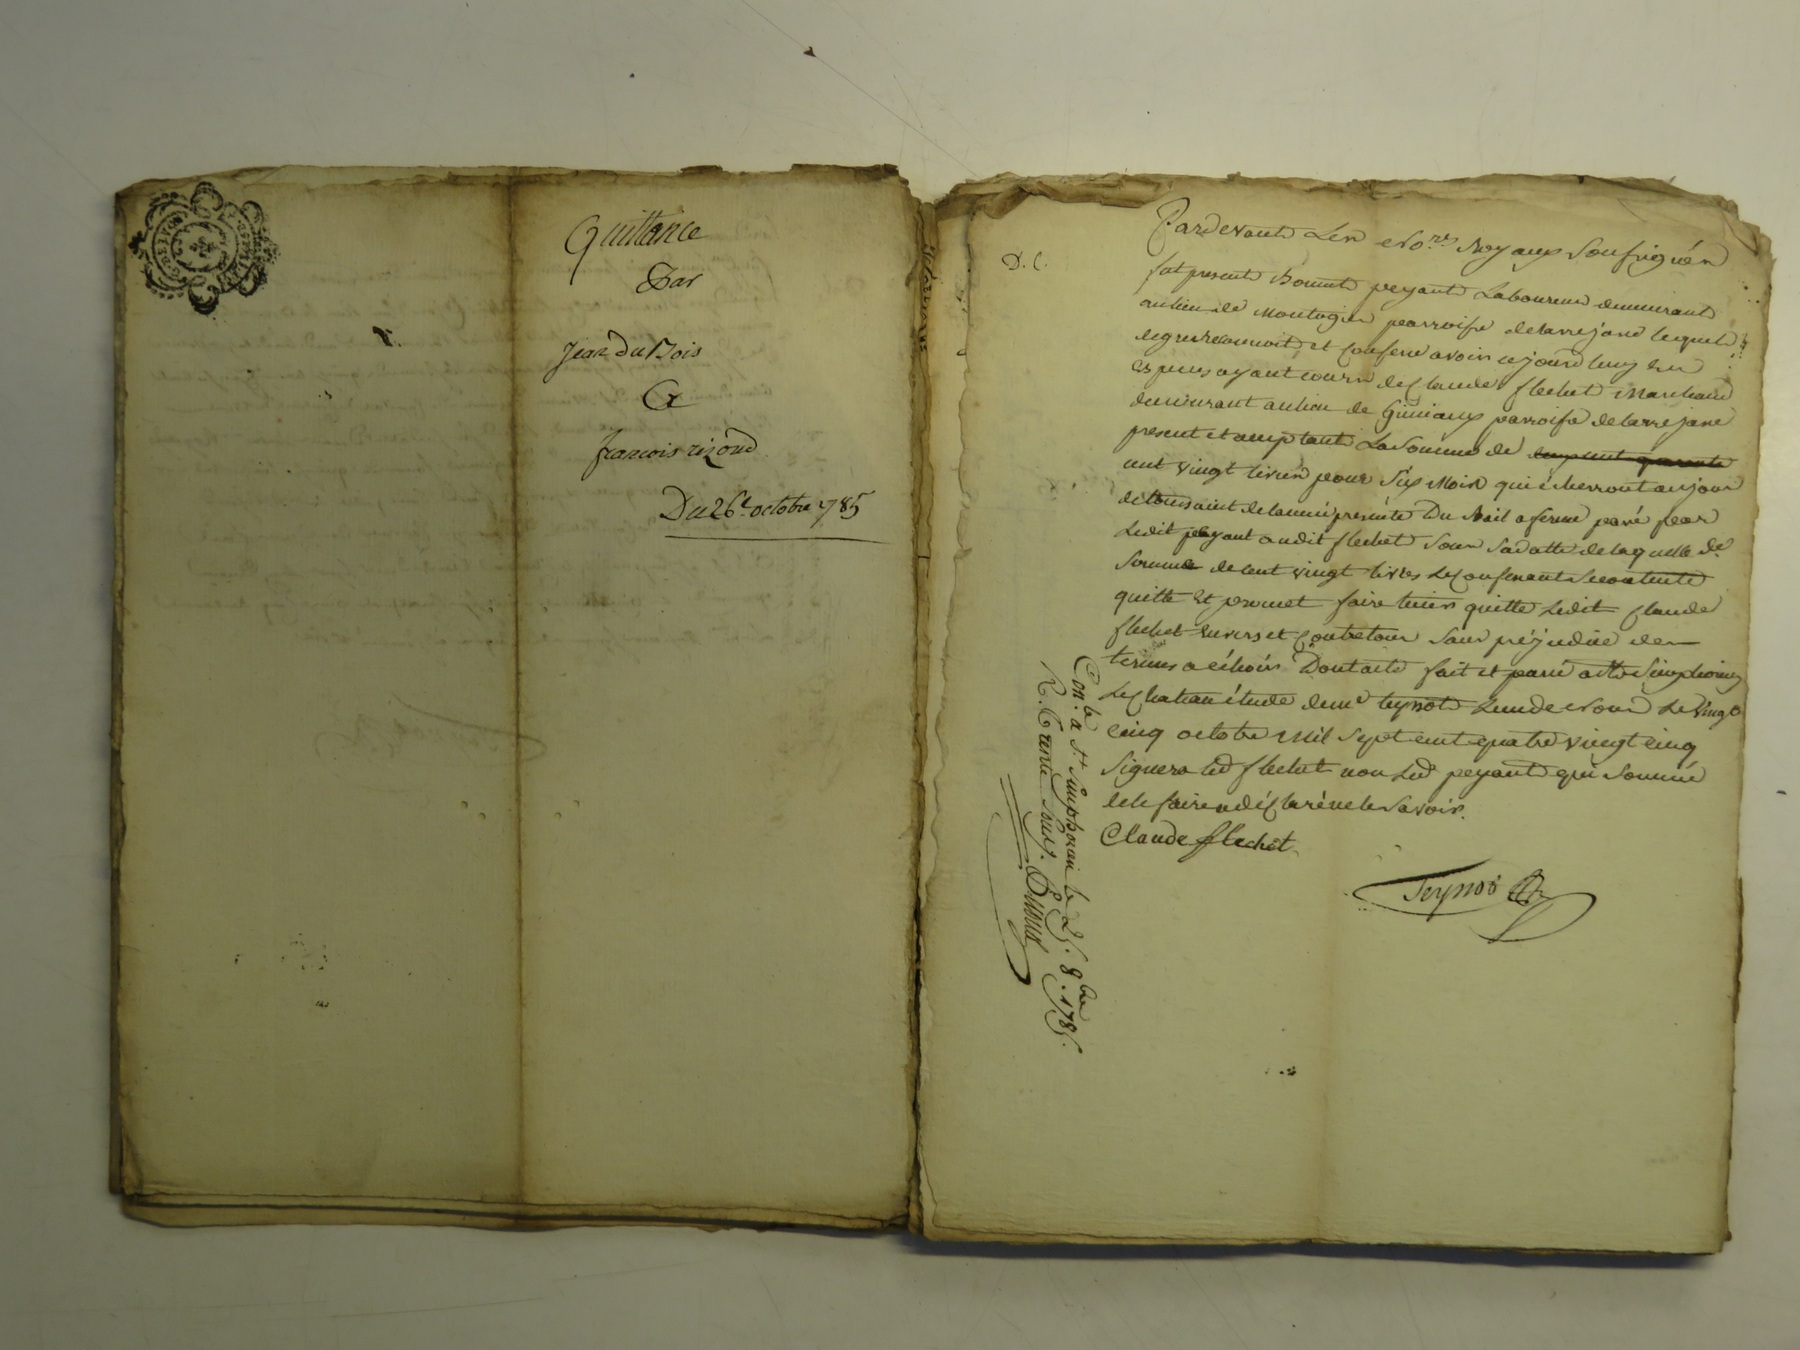 Quittance
Par
Jean Du Bois
A
francois rizond
Du 26e octobre 1785
D. C.
Pardevant Les No.res Royaux Soussignés
fut present Bonnet peyant Laboureur demeurant
au lieu de Montogier parroisse de larrejasse lequel
de gré reconnoit et Confesse avoir cejourd'huy en
Especes ayant cours de Claude flechet Marchand
demeurant au lieu de Gimiaux parroisse de larrejasse
present et acceptant La Somme de
cent vingt livres pour Six Mois qui echerront au jour
de toussaint de lannée presente Du Bail a ferme passé par
Ledit peyant audit flechet Sous Sa datte de laquelle de
Somme de Cent vingt livres Le Confessant Se contente
quitte Et promet faire tenir quitte Ledit Claude
flechet Envers et Contre tous Sans préjudice des
termes a échoir Dont acte fait et passé a St Simphorien
Le Chateau étude de me teynot Lun de Nous Le Vingt
Cinq octobre Mil Sept cent quatre vingt cinq
Signera led flechet non Led peyant qui Sommé
de le faire a déclaré ne le Savoir.
Claude flechet
Teynot
Con.lé a St. Simphorien le 25. 8bre 1785.
R. trente Sous.